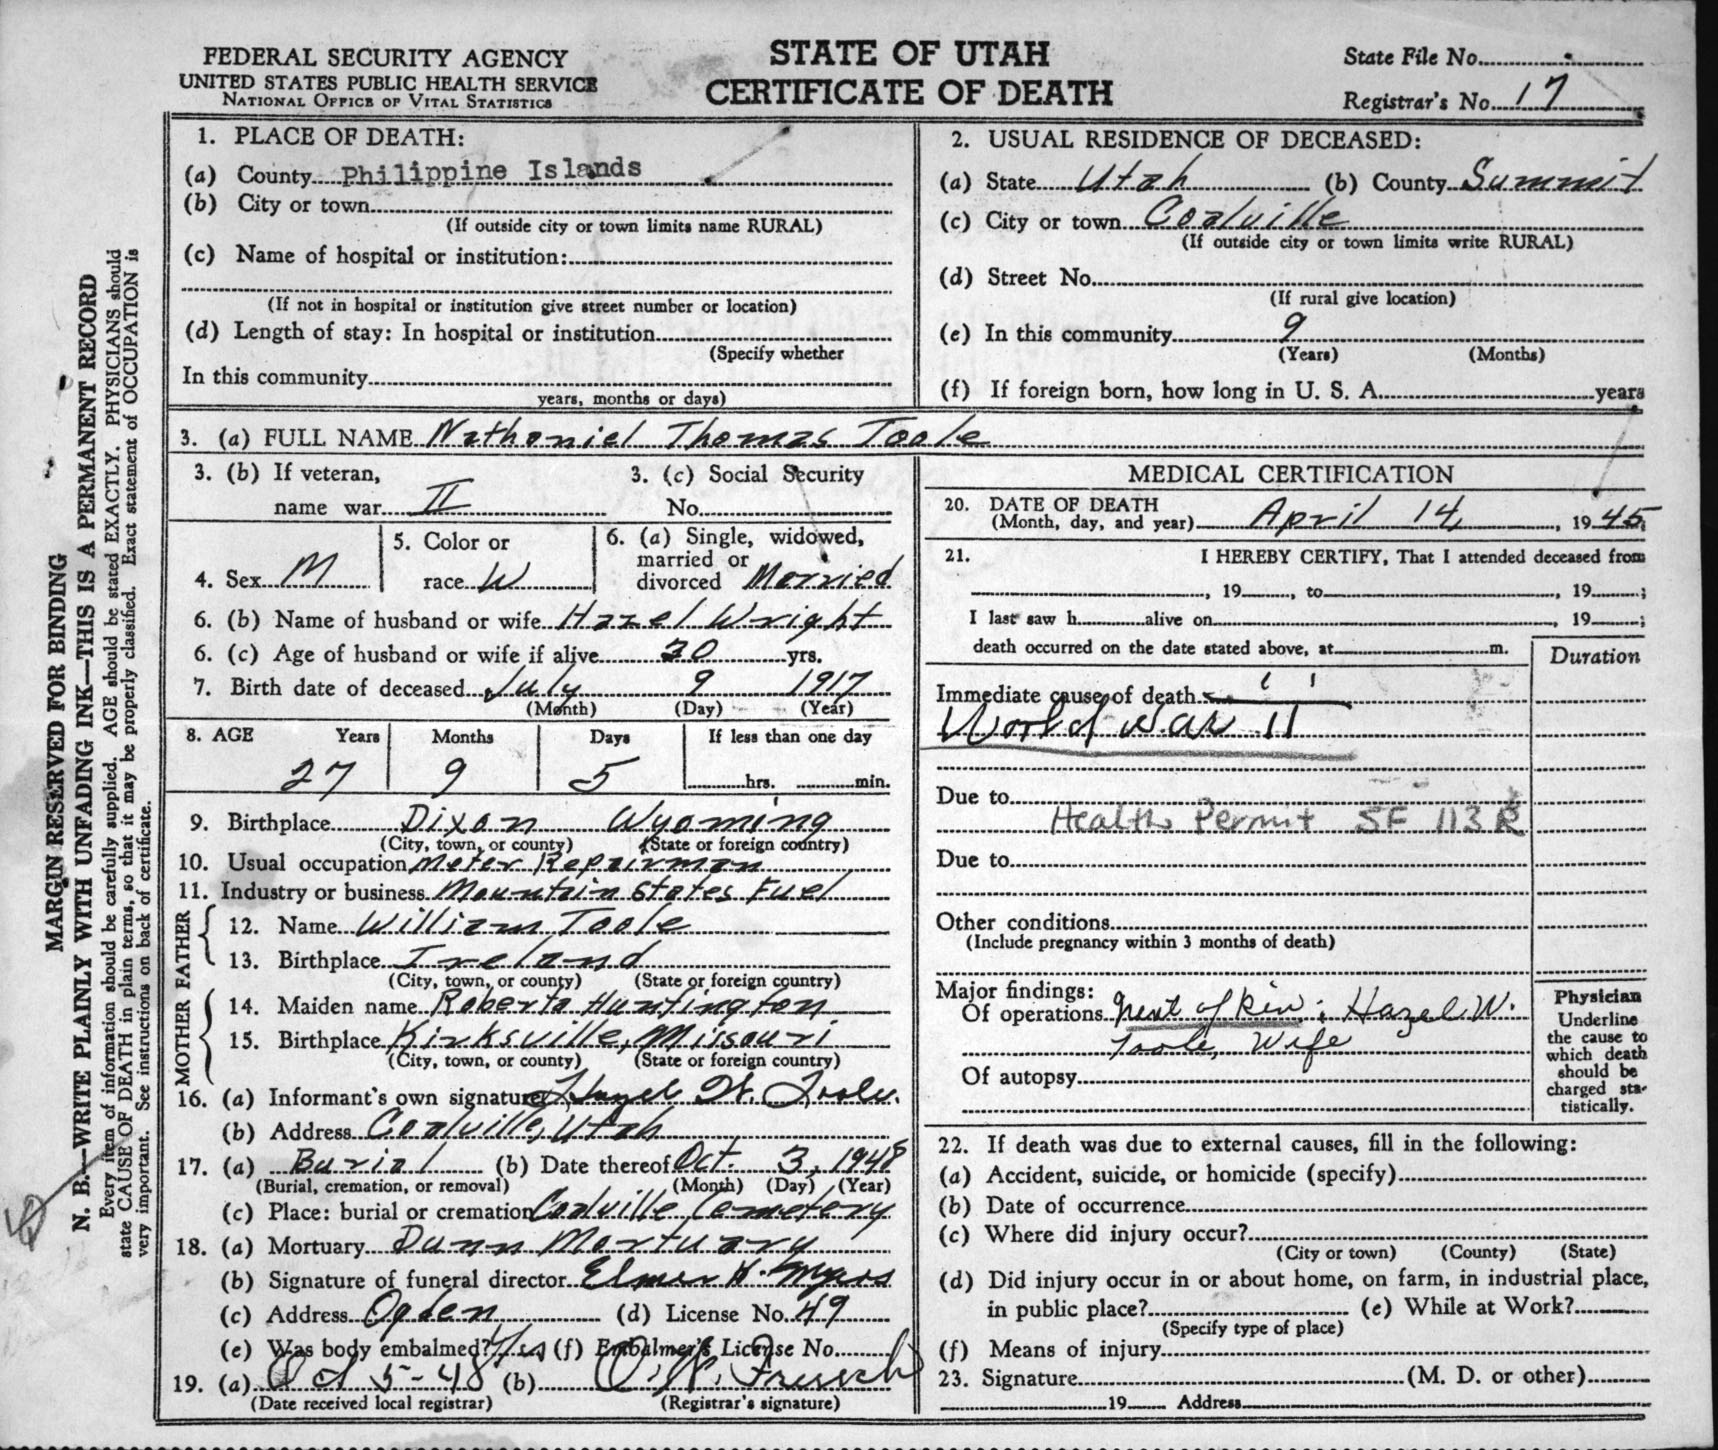 FEDERAL SECURITY AGENCY
UNITED STATES PUBLIC HEALTH SERVICE
NATIONAL OFFICE OF VITAL STATISTICS
STATE OF UTAH
CERTIFICATE OF DEATH
State File No.
Registrar's No. 17
MARGIN RESERVED FOR BINDING
N. B.—WRITE PLAINLY WITH UNFADING INK—THIS IS A PERMANENT RECORD
Every item of information should be carefully supplied. AGE should be stated EXACTLY. PHYSICIANS should
state CAUSE OF DEATH in plain terms, so that it may be properly classified. Exact statement of OCCUPATION is
very important. See instructions on back of certificate.
1. PLACE OF DEATH:
(a) County Philippine Islands
(b) City or town
(If outside city or town limits name RURAL)
(c) Name of hospital or institution:
(If not in hospital or institution give street number or location)
(d) Length of stay: In hospital or institution
(Specify whether
In this community
years, months or days)
2. USUAL RESIDENCE OF DECEASED:
(a) State Utah (b) County Summit
(c) City or town Coalville
(If outside city or town limits write RURAL)
(d) Street No.
(If rural give location)
(e) In this community 9
(Years) (Months)
(f) If foreign born, how long in U. S. A. years
3. (a) FULL NAME Nathaniel Thomas Toole
3. (b) If veteran, 3. (c) Social Security
name war II No.
4. Sex M
5. Color or
race W
6. (a) Single, widowed,
married or
divorced Married
6. (b) Name of husband or wife Hazel Wright
6. (c) Age of husband or wife if alive 30 yrs.
7. Birth date of deceased July 9 1917
(Month) (Day) (Year)
8. AGE Years Months Days If less than one day
27 9 5 hrs. min.
9. Birthplace Dixon Wyoming
(City, town, or county) (State or foreign country)
10. Usual occupation Meter Repairman
11. Industry or business Mountain States Fuel
FATHER
12. Name William Toole
13. Birthplace Ireland
(City, town, or county) (State or foreign country)
MOTHER
14. Maiden name Roberta Huntington
15. Birthplace Kirksville, Missouri
(City, town, or county) (State or foreign country)
16. (a) Informant's own signature Hazel W. Toole.
(b) Address Coalville, Utah
17. (a) Burial (b) Date thereof Oct. 3, 1948
(Burial, cremation, or removal) (Month) (Day) (Year)
(c) Place: burial or cremation Coalville Cemetery
18. (a) Mortuary Dunn Mortuary
(b) Signature of funeral director Elmer
(c) Address Ogden (d) License No. 49
(e) Was body embalmed? Yes (f) Embalmer's License No.
19. (a) Oct 5-48 (b)
(Date received local registrar) (Registrar's signature)
MEDICAL CERTIFICATION
20. DATE OF DEATH
(Month, day, and year) April 14, 1945
21. I HEREBY CERTIFY, That I attended deceased from
, 19 , to , 19 ;
I last saw h alive on , 19 ;
death occurred on the date stated above, at m.
Duration
Immediate cause of death
World war II
Due to
Health Permit SF 113 R
Due to
Other conditions
(Include pregnancy within 3 months of death)
Major findings:
Of operations Next of kin: Hazel W.
Toole, Wife
Of autopsy
Physician
Underline
the cause to
which death
should be
charged sta-
tistically.
22. If death was due to external causes, fill in the following:
(a) Accident, suicide, or homicide (specify)
(b) Date of occurrence
(c) Where did injury occur?
(City or town) (County) (State)
(d) Did injury occur in or about home, on farm, in industrial place,
in public place? (e) While at Work?
(Specify type of place)
(f) Means of injury
23. Signature (M. D. or other)
19 Address